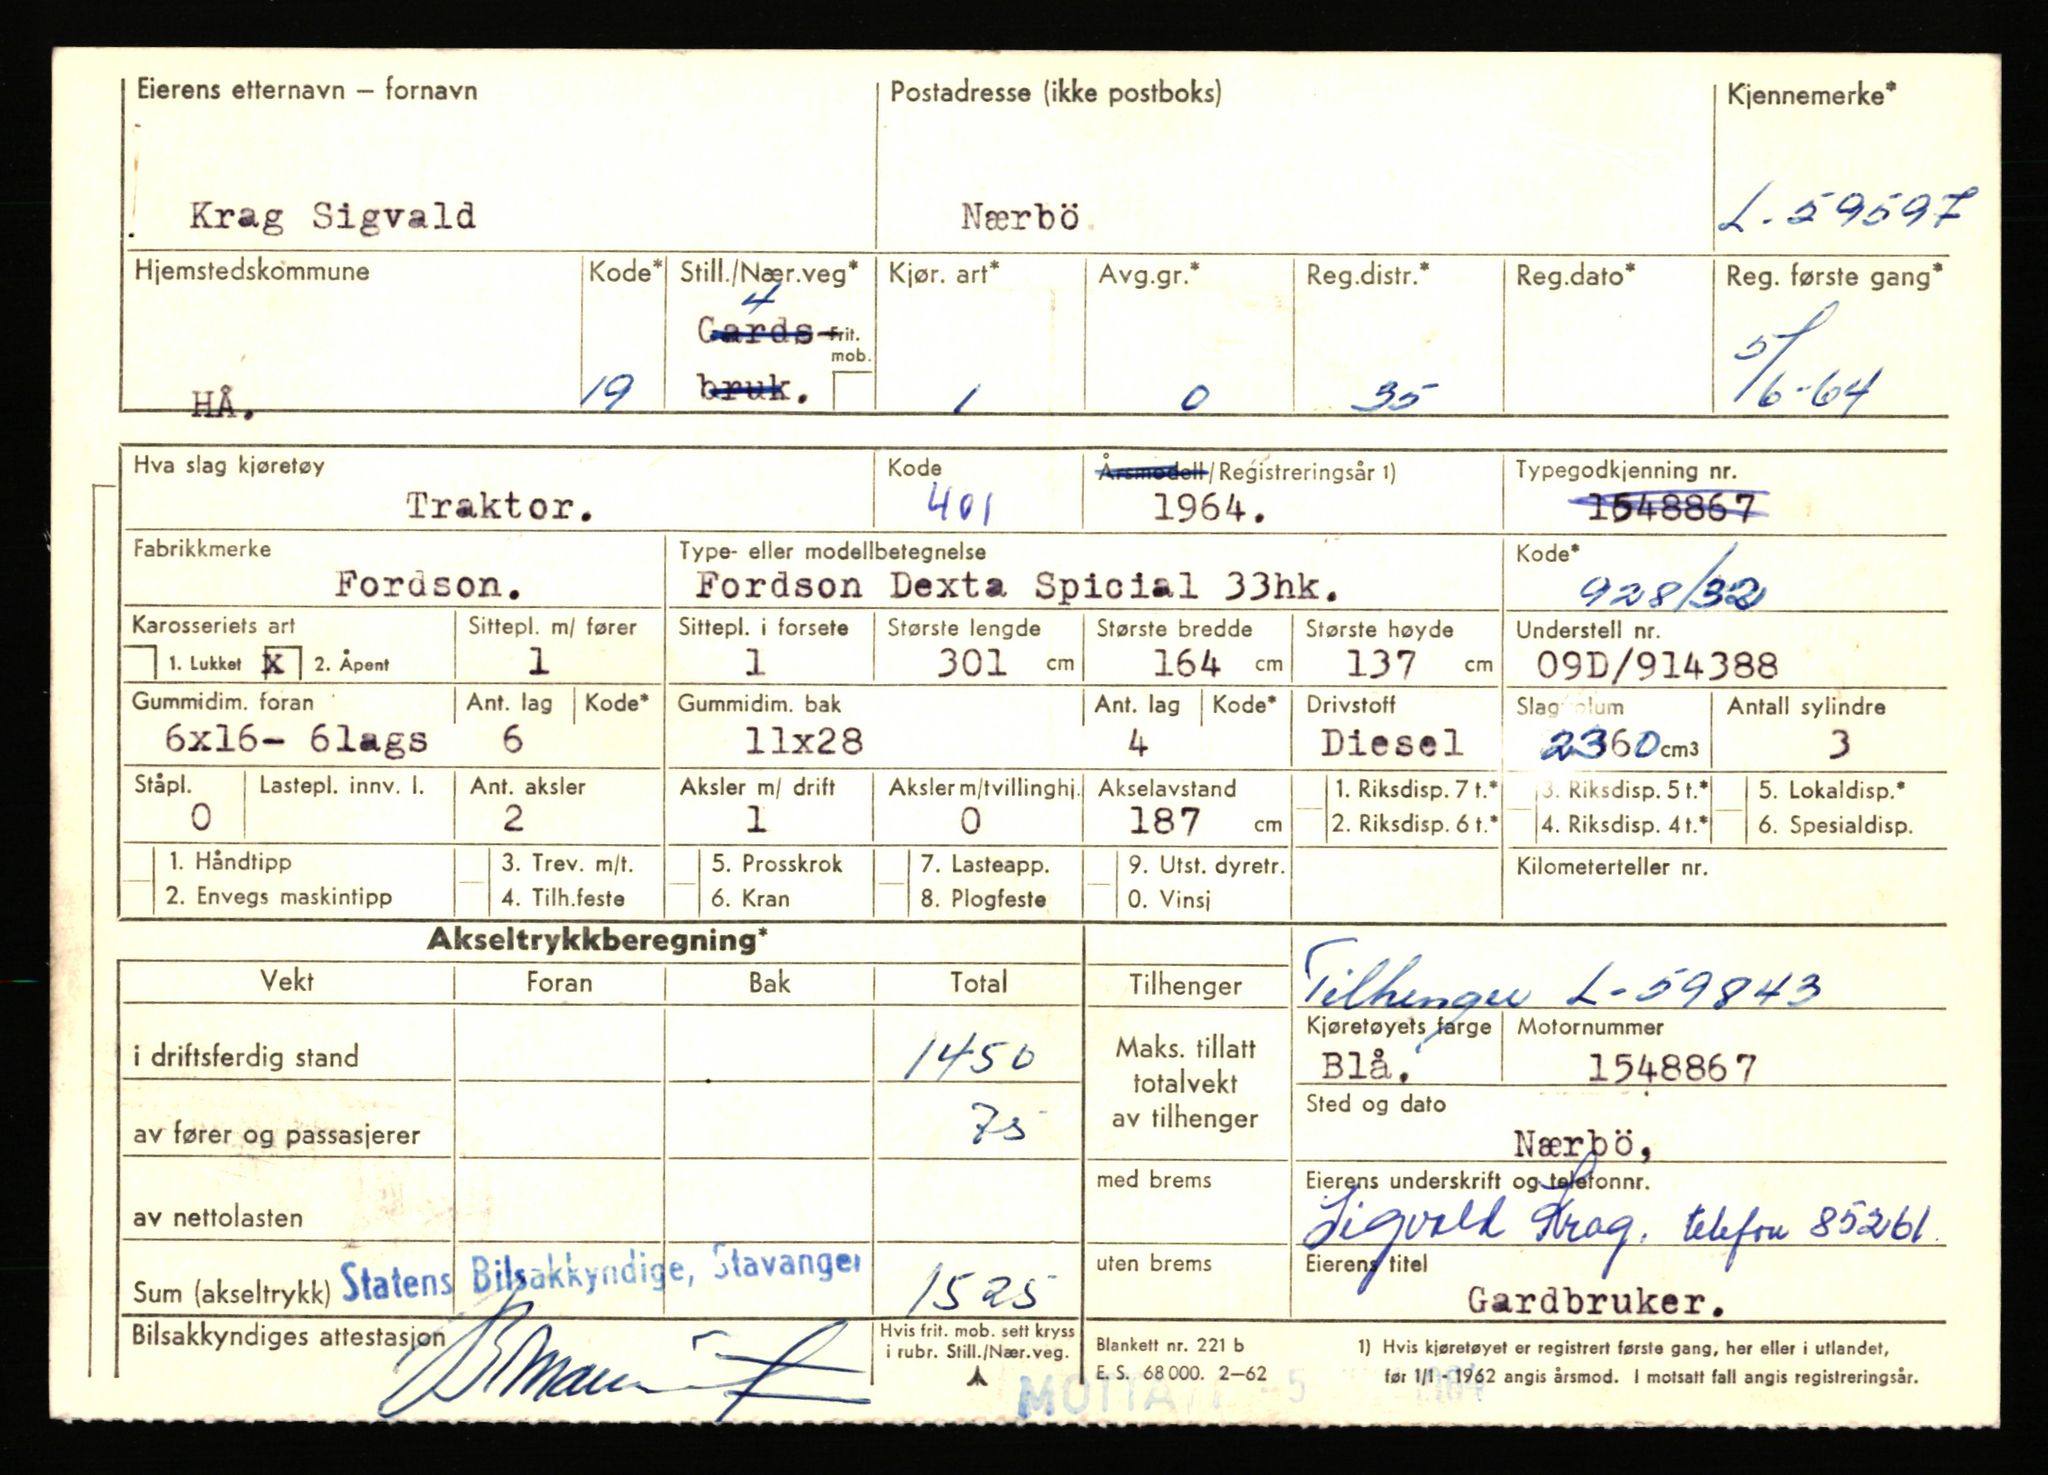 Eierens etternavn – fornavn
Postadresse (ikke postboks)
Kjennemerke*
Krag Sigvald
Nærbö
L-59597
Hjemstedskommune
Kode*
Still./Nær.veg*
Kjør. art*
Avg.gr.*
Reg.distr.*
Reg.dato*
Reg. første gang*
4
Gards- frit.
mob.
bruk.
HÅ.
19
1
0
35
5/6-64
Hva slag kjøretøy
Kode
Årsmodell/Registreringsår 1)
Typegodkjenning nr.
Traktor.
401
1964.
1548867
Fabrikkmerke
Type- eller modellbetegnelse
Kode*
Fordson.
Fordson Dexta Spicial 33hk.
928/32
Karosseriets art
Sittepl. m/ fører
Sittepl. i forsete
Største lengde
Største bredde
Største høyde
Understell nr.
1. Lukket x 2. Åpent
1
1
301 cm
164 cm
137 cm
09D/914388
Gummidim. foran
Ant. lag
Kode*
Gummidim. bak
Ant. lag
Kode*
Drivstoff
Slagvolum
Antall sylindre
6x16- 6lags
6
11x28
4
Diesel
2360 cm3
3
Ståpl.
Lastepl. innv. l.
Ant. aksler
Aksler m/ drift
Aksler m/tvillinghj.
Akselavstand
1. Riksdisp. 7 t.*
3. Riksdisp. 5 t.*
5. Lokaldisp.*
0
2
1
0
187 cm
2. Riksdisp. 6 t.*
4. Riksdisp. 4 t.*
6. Spesialdisp.
1. Håndtipp
3. Trev. m/t.
5. Prosskrok
7. Lasteapp.
9. Utst. dyretr.
Kilometerteller nr.
2. Envegs maskintipp
4. Tilh.feste
6. Kran
8. Plogfeste
0. Vinsj
Akseltrykkberegning*
Vekt
Foran
Bak
Total
Tilhenger
Tilhenger L-59843
Kjøretøyets farge
Motornummer
i driftsferdig stand
1450
Maks. tillatt
totalvekt
av tilhenger
Blå.
1548867
Sted og dato
av fører og passasjerer
75
Nærbö,
med brems
Eierens underskrift og telefonnr.
av nettolasten
Sigvald Krag. telefon 85261.
uten brems
Eierens titel
Sum (akseltrykk)
Statens Bilsakkyndige, Stavanger
1525
Gardbruker.
Bilsakkyndiges attestasjon
Hvis frit. mob. sett kryss
i rubr. Still./Nær.veg.
Blankett nr. 221 b
E. S. 68 000. 2–62
1) Hvis kjøretøyet er registrert første gang, her eller i utlandet,
før 1/1 - 1962 angis årsmod. I motsatt fall angis registreringsår.
MOTTATT - 5